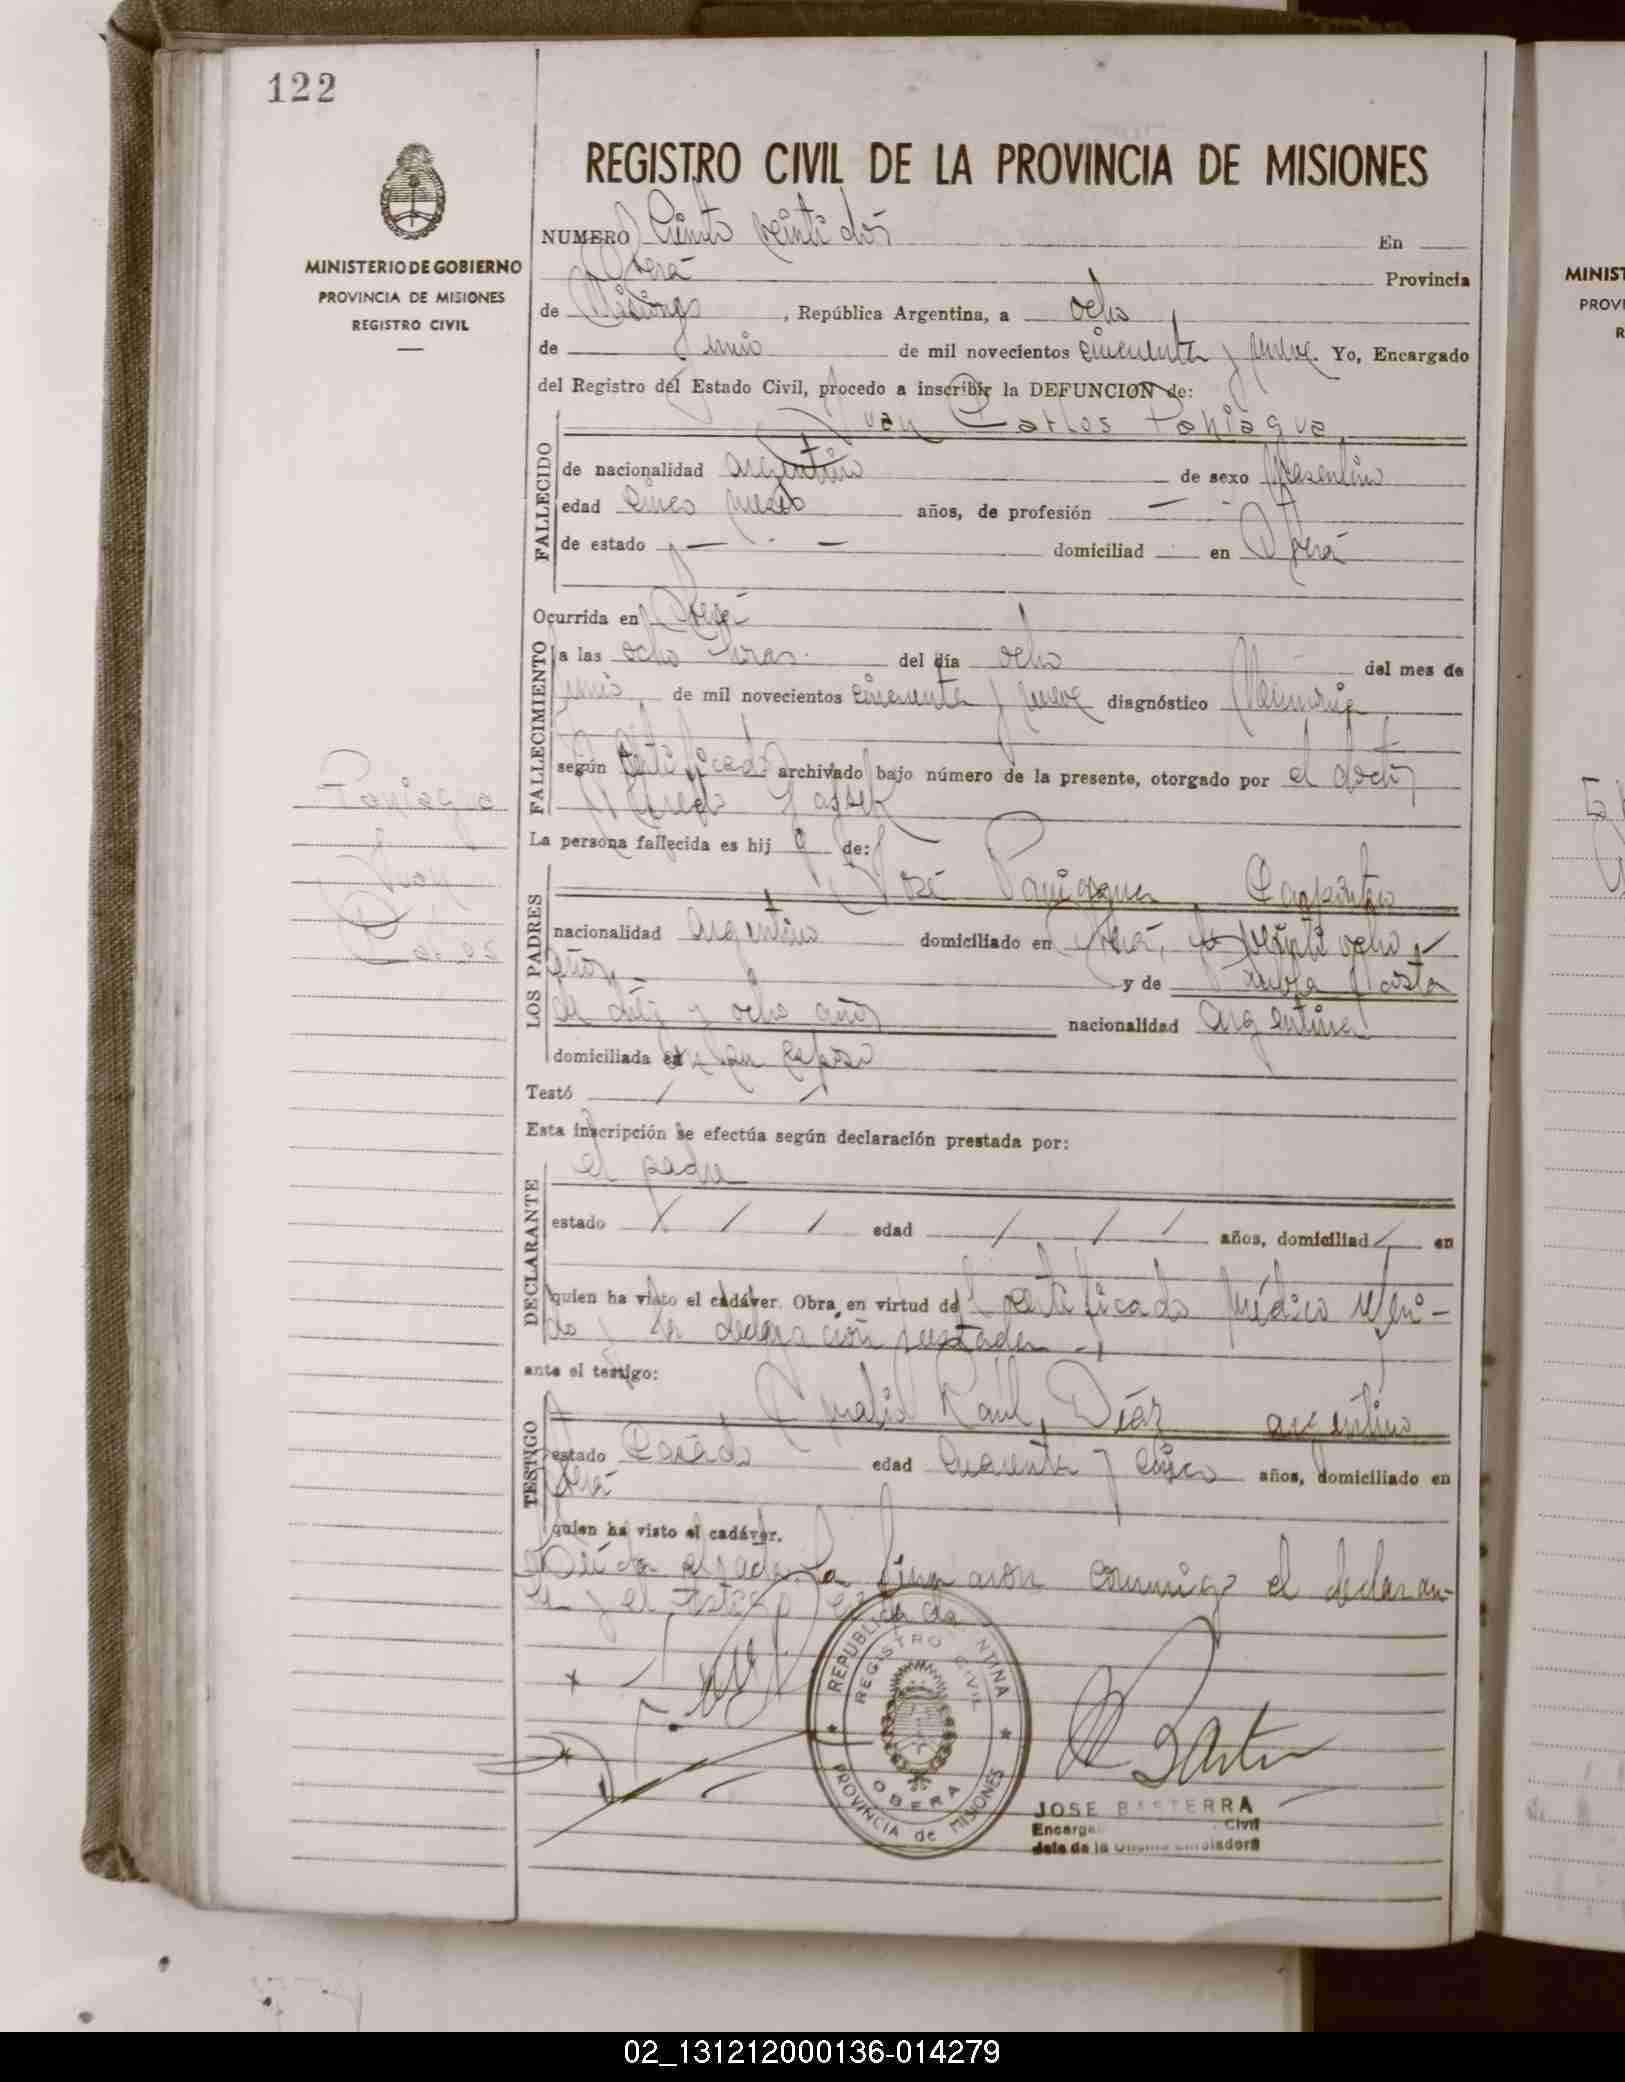 122
REGISTRO CIVIL DE LA PROVINCIA DE MISIONES
MINISTERIO DE GOBIERNO
PROVINCIA DE MISIONES
REGISTRO CIVIL
NUMERO Ciento veinti dós En
Oberá Provincia
de Misiones, República Argentina, a ocho
de Junio de mil novecientos cincuenta y nueve. Yo, Encargado
del Registro del Estado Civil, procedo a inscribir la DEFUNCION de:
Juan Carlos Paniagua
FALLECIDO
de nacionalidad argentino de sexo Masculino
edad cinco meses años, de profesión
de estado domiciliad en Oberá
Ocurrida en Oberá
FALLECIMIENTO
a las ocho horas del día ocho del mes de
Junio de mil novecientos cincuenta y nueve diagnóstico
según certificado archivado bajo número de la presente, otorgado por el doctor
Alfredo
La persona fallecida es hij o de:
LOS PADRES
José Paniagua, Carpintero
nacionalidad Argentino domiciliado en Oberá, de veinti ocho
años, y de Acosta
de diéz y ocho años nacionalidad Argentina
domiciliada en su esposo
Testó
Esta inscripción se efectúa según declaración prestada por:
el padre
DECLARANTE
estado edad años, domiciliad en
quien ha visto el cadáver. Obra en virtud del certificado médico referi-
do y la declaración prestada
ante el testigo:
TESTIGO
Raúl Díaz argentino
estado Casado edad cuarenta y cinco años, domiciliado en
Oberá
quien ha visto el cadáver.
Leída el acta la firmaron conmigo el declaran-
te y el testigo
Paniagua
Juan
Carlos
REPUBLICA ARGENTINA
REGISTRO CIVIL
OBERA
PROVINCIA de MISIONES
JOSE BASTERRA
Civil
Jefe de la Oficina Enroladora
MINIST
PROVI
R
02_131212000136-014279